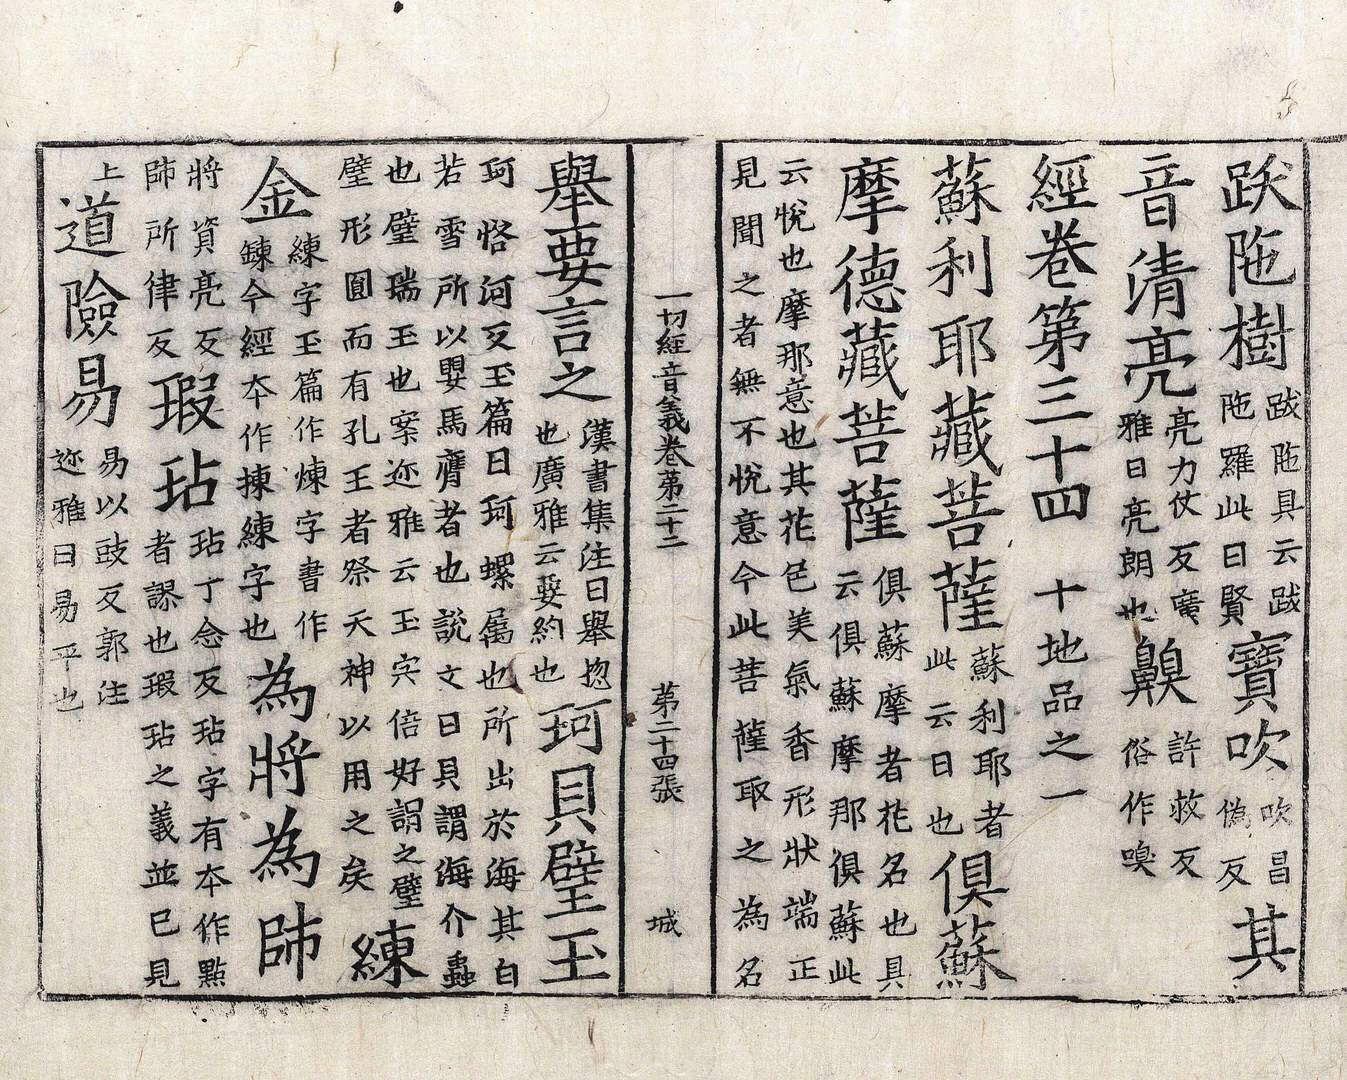 跃陁樹跋陁具云跋陁羅此曰賢寶吹吹昌偽反其
音清亮亮力仗反廣雅曰亮朗也齅許救反俗作嗅
經卷第三十四 十地品之一
蘇利耶藏菩薩蘇利耶者此云日也俱蘇
摩德藏菩薩俱蘇摩者花名也具云俱蘇摩那俱蘇此
云悅也摩那意也其花色美氣香形狀端正
見聞之者無不悅意今此菩薩取之為名
一切經音義卷第二十二 第二十四張 城
舉要言之漢書集注曰舉惣也廣雅云要約也珂貝璧玉
珂恪河反玉篇曰珂螺属也所出於海其白
若雪所以嬰馬膺者也說文曰貝謂海介蟲
也璧瑞玉也案迩雅云玉宍倍好謂之璧
璧形圓而有孔王者祭天神以用之矣練
金練字玉篇作煉字書作鍊今經本作揀練字也為將為師
將資亮反師所律反瑕玷玷丁念反玷字有本作點者謬也瑕玷之義並已見
上道險易易以豉反郭注迩雅曰易平也